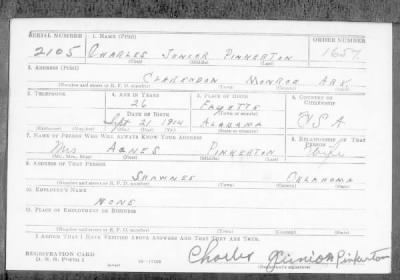 SERIAL NUMBER 1. NAME (Print) ORDER NUMBER
2105 CHARLES JUNIOR PINKERTON 1657
(First) (Middle) (Last)
2. ADDRESS (Print)
CLARENDON MONROE ARK.
(Number and street or R. F. D. number) (Town) (County) (State)
3. TELEPHONE 4. AGE IN YEARS 5. PLACE OF BIRTH 6. COUNTRY OF CITIZENSHIP
26 FAYETTE
DATE OF BIRTH (Town or county)
Sept. 21 1914 ALABAMA USA
(Exchange) (Number) (Mo.) (Day) (Yr.) (State or country)
7. NAME OF PERSON WHO WILL ALWAYS KNOW YOUR ADDRESS 8. RELATIONSHIP OF THAT PERSON
Mrs AGNES PINKERTON Wife
(Mr., Mrs., Miss) (First) (Middle) (Last)
9. ADDRESS OF THAT PERSON
SHAWNEE OKLAHOMA
(Number and street or R. F. D. number) (Town) (County) (State)
10. EMPLOYER'S NAME
NONE
11. PLACE OF EMPLOYMENT OR BUSINESS
(Number and street or R. F. D. number) (Town) (County) (State)
I AFFIRM THAT I HAVE VERIFIED ABOVE ANSWERS AND THAT THEY ARE TRUE.
REGISTRATION CARD
D. S. S. Form 1
Charles Junior Pinkerton
(Registrant's signature)